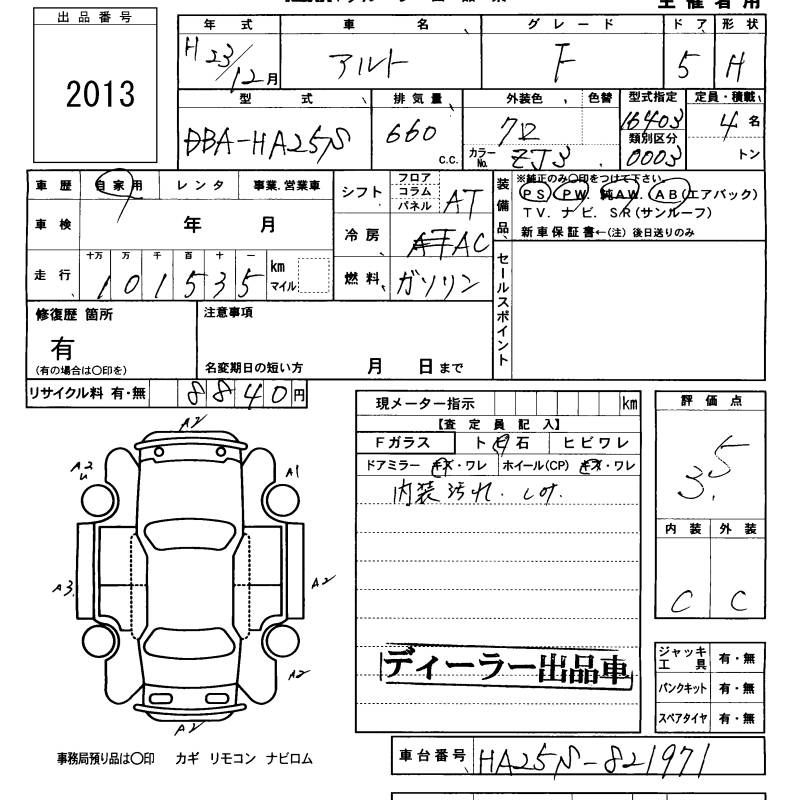 主催者用
出品番号
2013
年式 車名 グレード ドア 形状
H23/12月 アルト F 5 H
型式 排気量 外装色 色替 型式指定 定員・積載
DBA-HA25S 660 C.C. 16403 4名
類別区分
カラーNo. ZJ3 0003 トン
車歴 自家用 レンタ 事業.営業車
車検 年 月
走行 十万 万 千 百 十 一
101535 km マイル
シフト フロア コラム パネル AT
冷房 AC
燃料 ガソリン
装備品
※純正のみ〇印をつけて下さい。
PS PW 純AW. AB(エアバック)
TV. ナビ. SR(サンルーフ)
新車保証書←(注) 後日送りのみ
セールスポイント
修復歴 箇所
有
(有の場合は〇印を)
注意事項
名変期日の短い方 月 日まで
リサイクル料 有・無 8840円
現メーター指示 km
【査定員記入】
Fガラス ト 石 ヒビワレ
ドアミラー キズ・ワレ ホイール(CP) キズ・ワレ
内装汚れ.
評価点
3.5
内装 外装
C C
A2
A2
U
A1
A3
A2
A2
A2
ディーラー出品車
ジャッキ工具 有・無
パンクキット 有・無
スペアタイヤ 有・無
事務局預り品は〇印 カギ リモコン ナビロム
車台番号 HA25S-821971